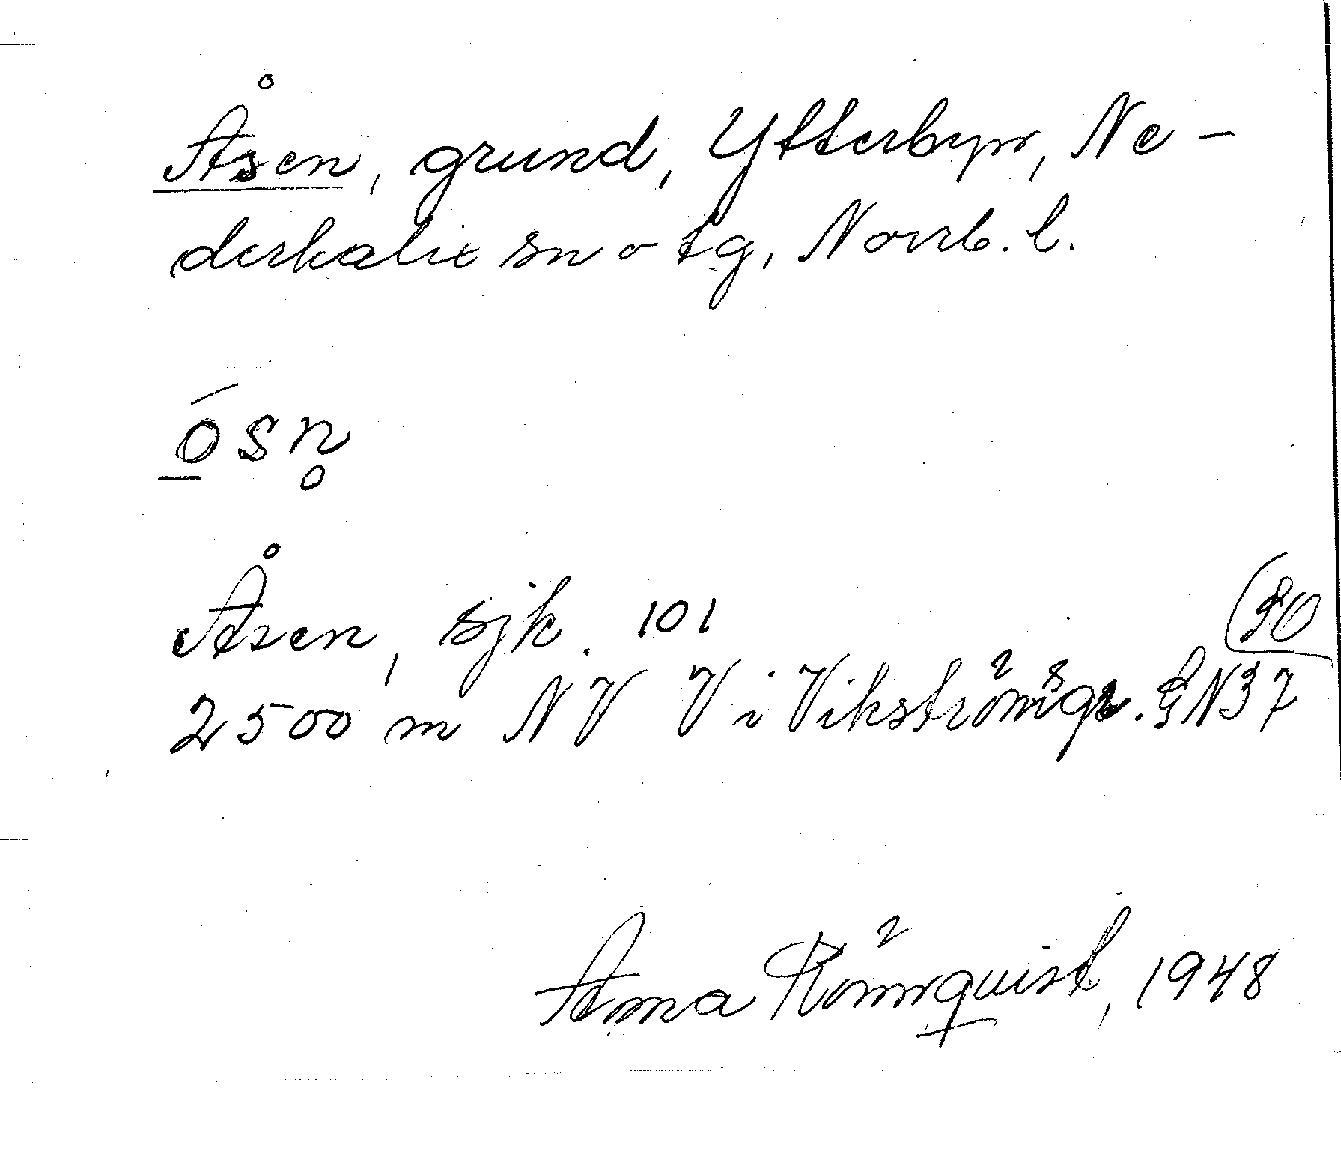 Åsen, grund, Ytterbyn, Ne-
derkalix sn o tg, Norrb. l.
ó̱sn̥
Åsen, sjk. 101
2500 m NV V i Vikströmsgr.
Anna Rönnquist, 1948